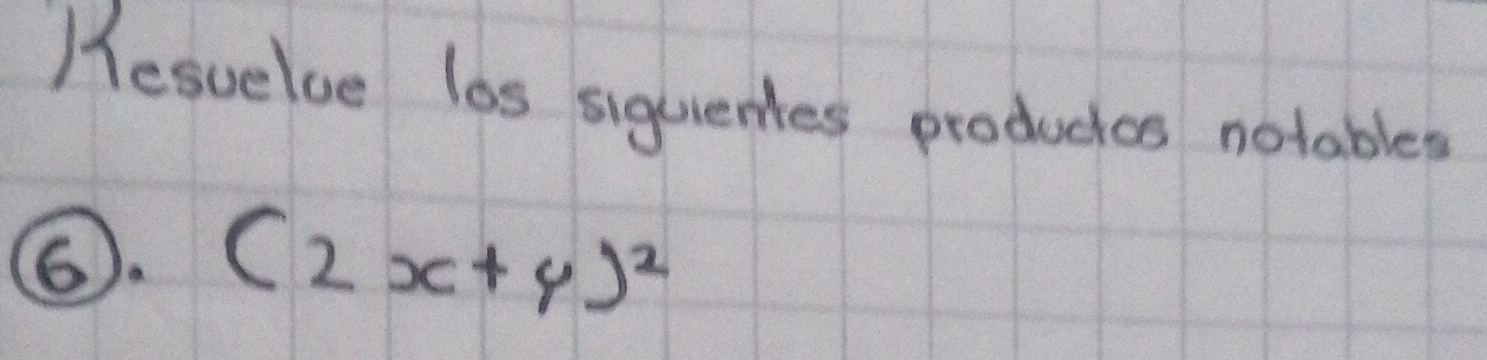 Resuelve los siguientes productos notables
⑥. (2x+y)²